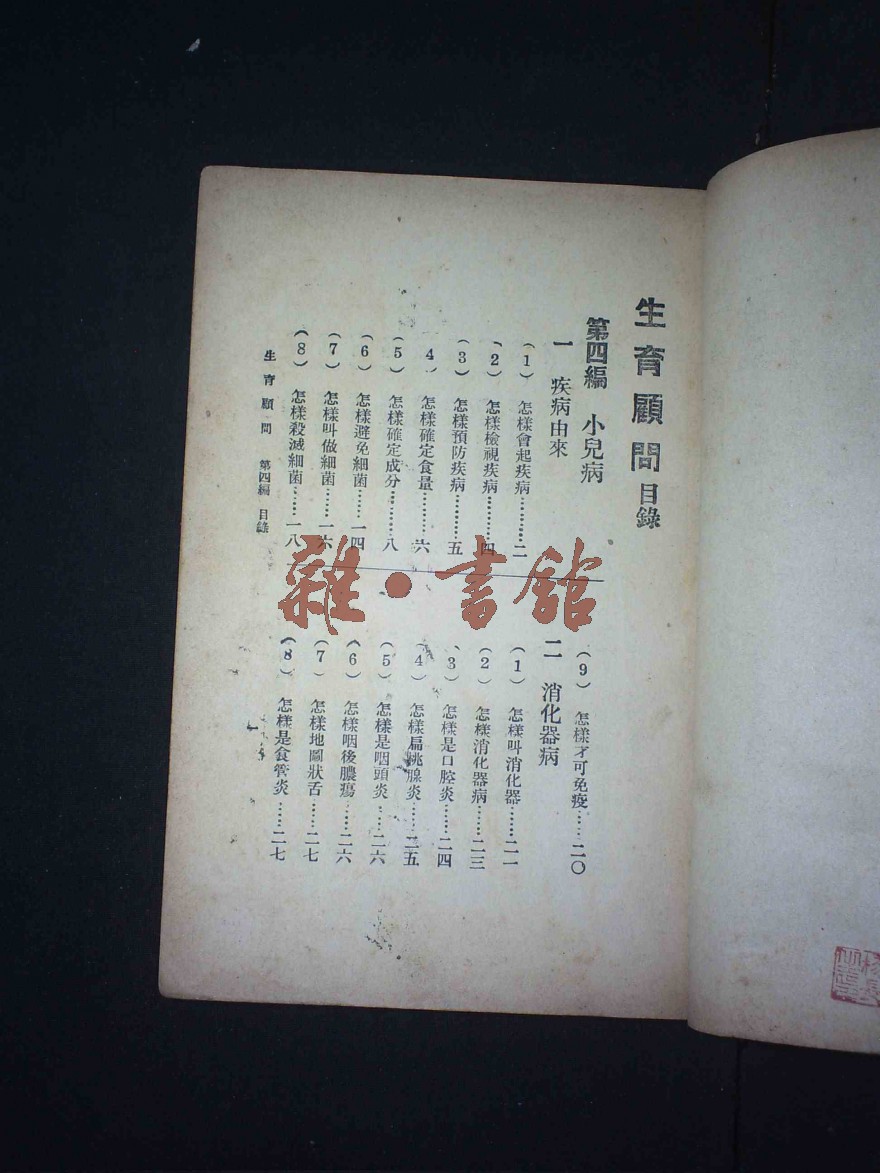 生育顧問目錄
第四編 小兒病
一 疾病由來
(1) 怎樣會起疾病………二
(2) 怎樣檢視疾病………四
(3) 怎樣預防疾病………五
(4) 怎樣確定食量………六
(5) 怎樣確定成分………八
(6) 怎樣避免細菌……一四
(7) 怎樣叫做細菌……一六
(8) 怎樣殺滅細菌……一八
(9) 怎樣才可免疫……二〇
二 消化器病
(1) 怎樣叫消化器……二一
(2) 怎樣消化器病……二三
(3) 怎樣是口腔炎……二四
(4) 怎樣扁桃腺炎……二五
(5) 怎樣是咽頭炎……二六
(6) 怎樣咽後膿瘍……二六
(7) 怎樣地圖狀舌……二七
(8) 怎樣是食管炎……二七
生育顧問 第四編 目錄
一
雜·書館